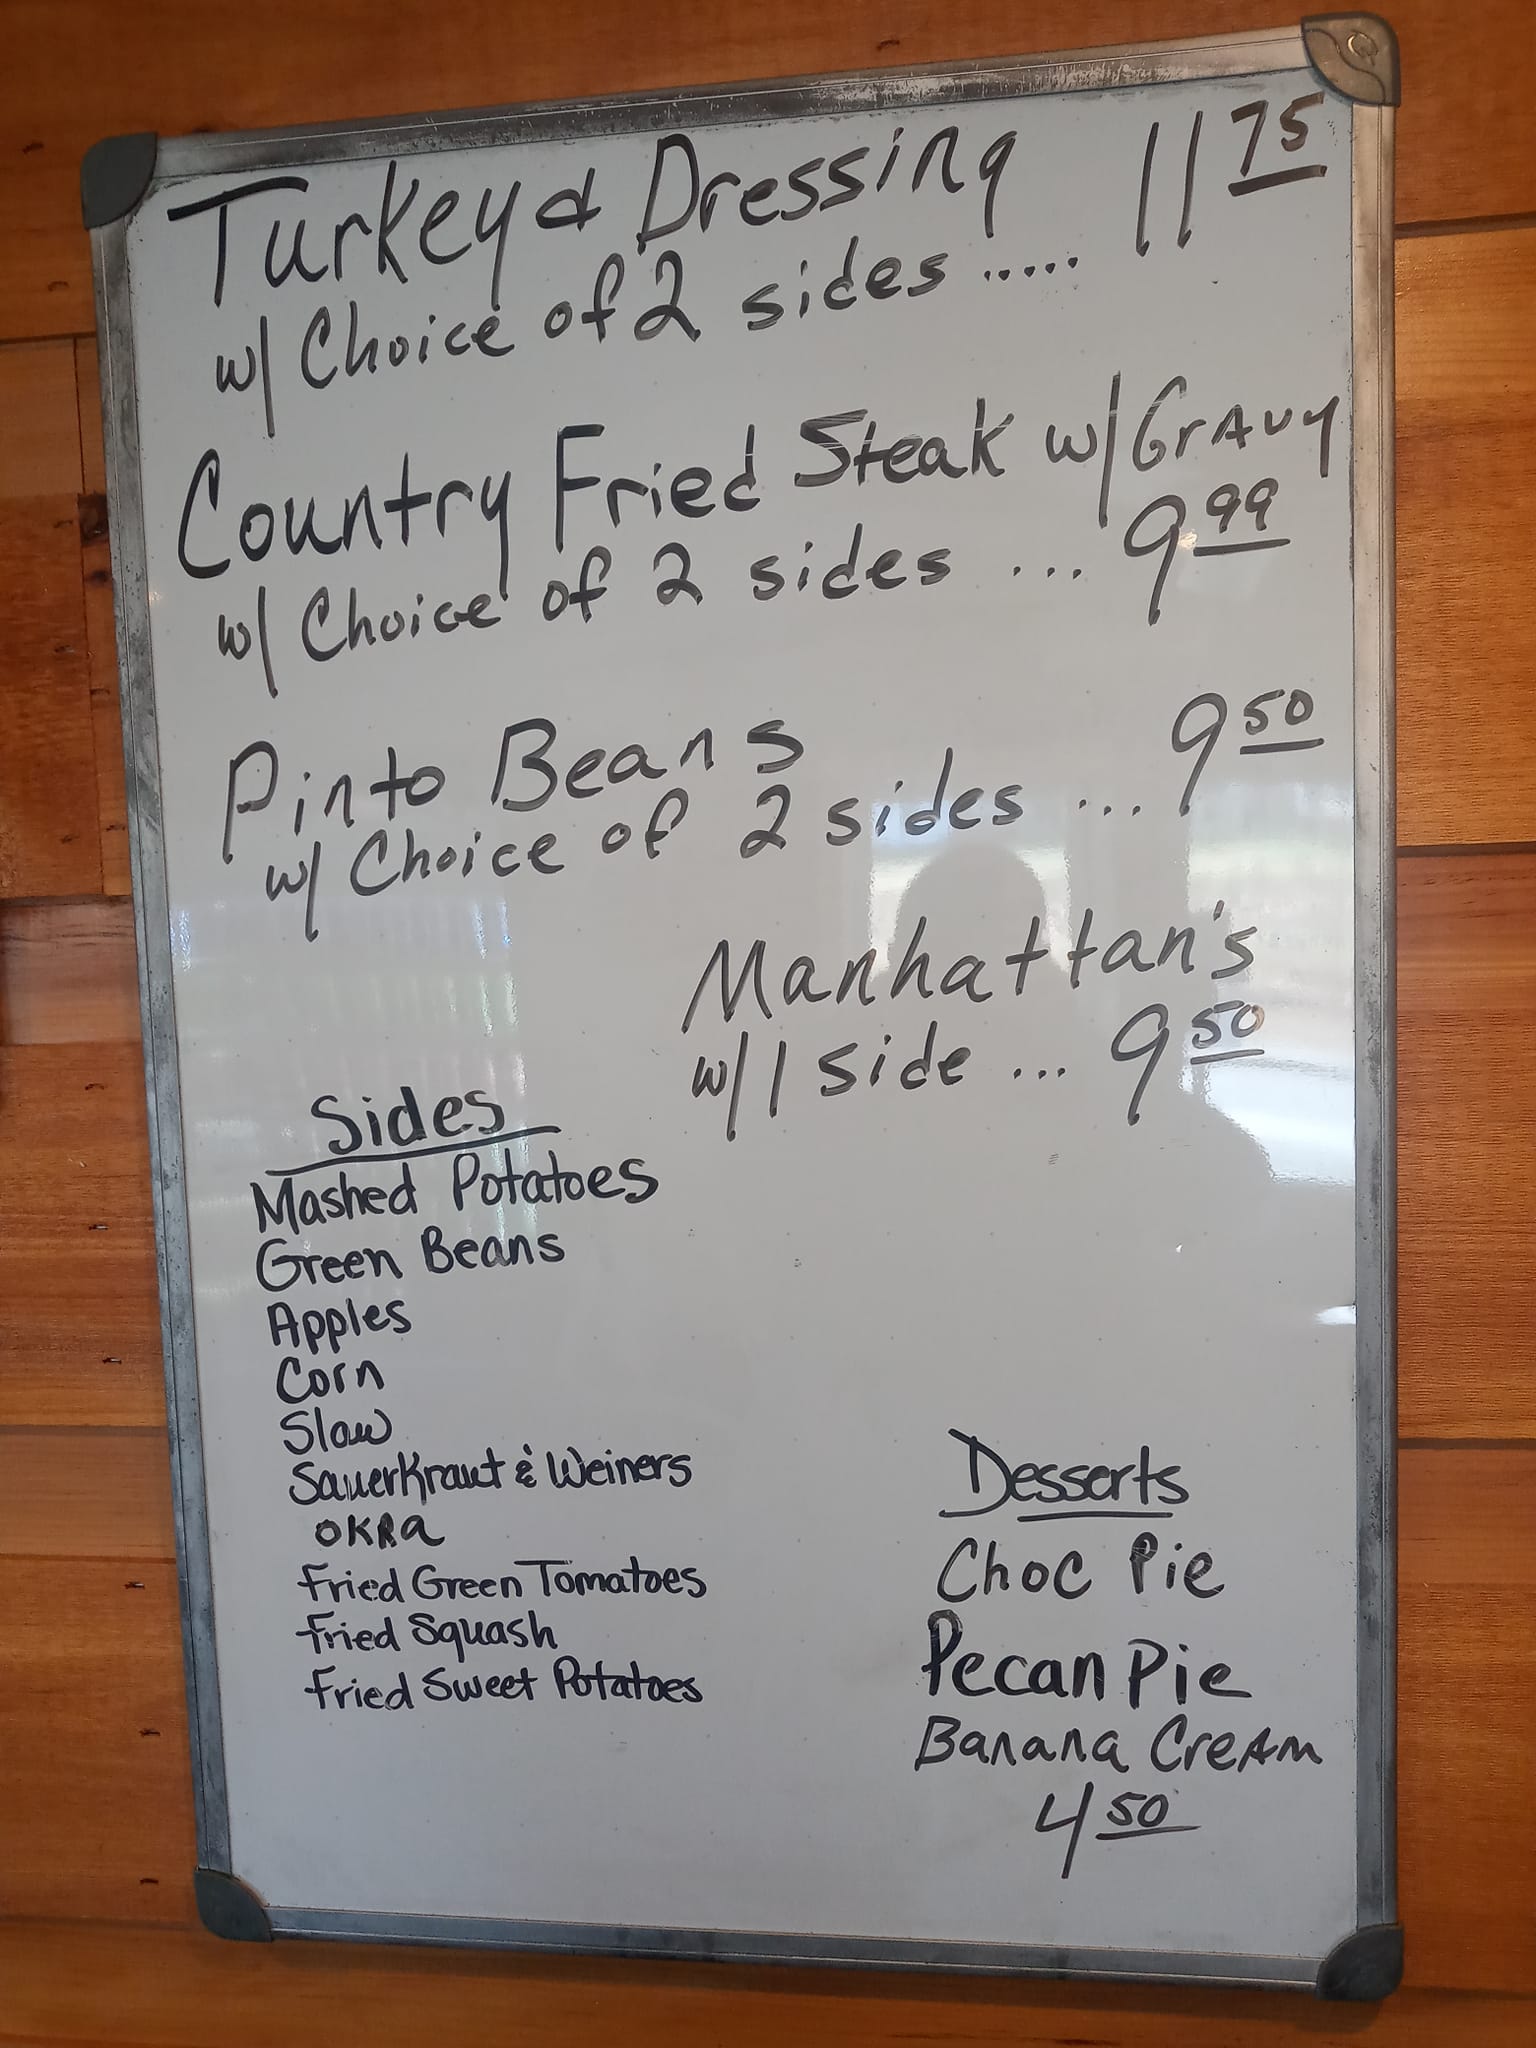 Turkey & Dressing 11 75
w/ Choice of 2 sides .....
Country Fried Steak w/ GrAvy
w/ Choice of 2 sides ... 9 99
Pinto Beans
w/ Choice of 2 sides ... 9 50
Manhattan's
w/ 1 side ... 9 50
Sides
Mashed Potatoes
Green Beans
Apples
Corn
Slaw
SauerKraut & Weiners
OKRa
Fried Green Tomatoes
Fried Squash
Fried Sweet Potatoes
Desserts
Choc Pie
Pecan Pie
Banana CreAm
4 50